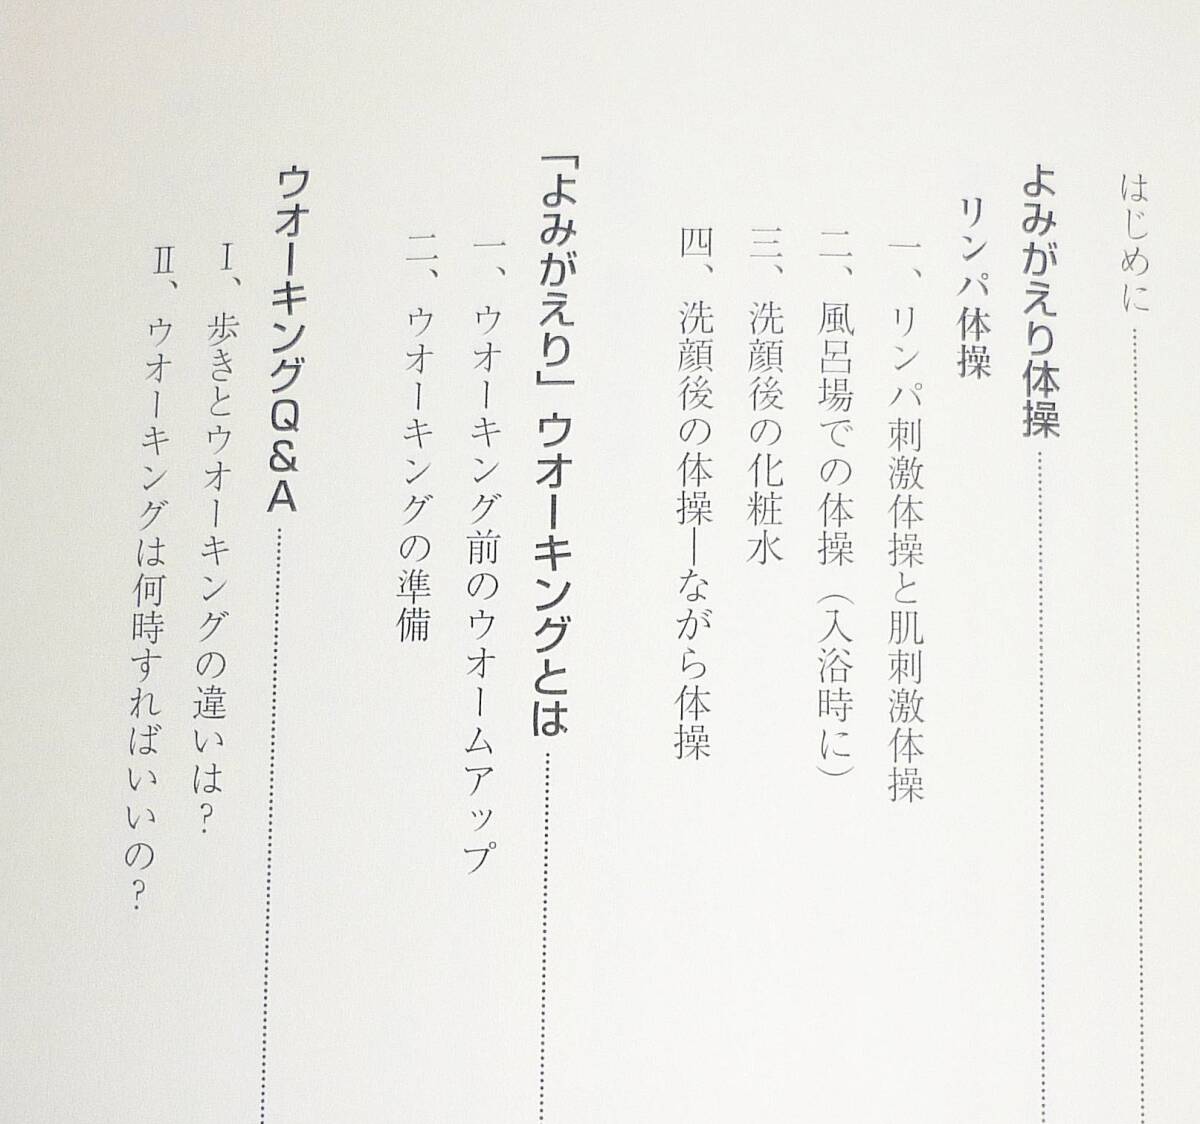 はじめに
よみがえり体操
リンパ体操
一、リンパ刺激体操と肌刺激体操
二、風呂場での体操（入浴時に）
三、洗顔後の化粧水
四、洗顔後の体操―ながら体操
「よみがえり」ウオーキングとは
一、ウオーキング前のウオームアップ
二、ウオーキングの準備
ウオーキングQ&A
Ⅰ、歩きとウオーキングの違いは?
Ⅱ、ウオーキングは何時すればいいの?